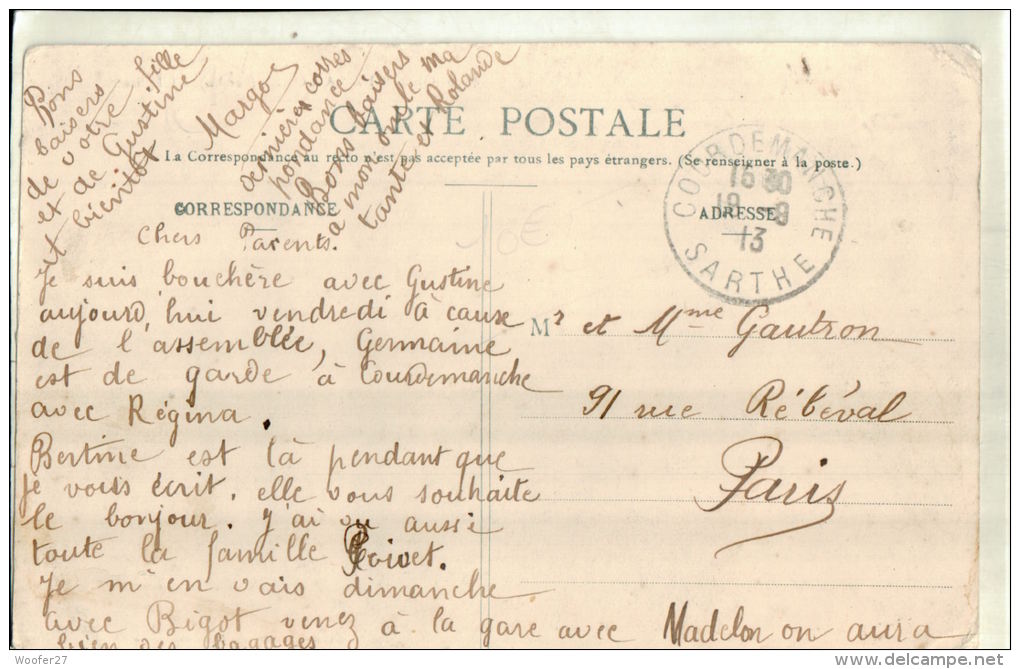 CARTE POSTALE
La Correspondance au recto n'est pas acceptée par tous les pays étrangers. (Se renseigner à la poste.)
CORRESPONDANCE
ADRESSE
COURDEMANCHE
16 30
18 - 8
13
SARTHE
10€
Chers Parents.
Je suis bouchère avec Gustine
aujourd'hui vendredi à cause
de l'assemblée, Germaine
est de garde à Courdemanche
avec Régina.
Bertine est là pendant que
je vous écrit. elle vous souhaite
le bonjour. J'ai vu aussi
toute la famille Poivet.
Je m'en vais dimanche
avec Bigot venez à la gare avec Madelon on aura
bien des bagages
Bons
baisers
de votre fille
et de Gustine
et bientôt
Margot
dernières corres
pondance
Bons baisers
à mon oncle ma
tante et Rolande
Mr et Mme Gautron
91 rue Rébéval
Paris
Woofer27
www.delcampe.net